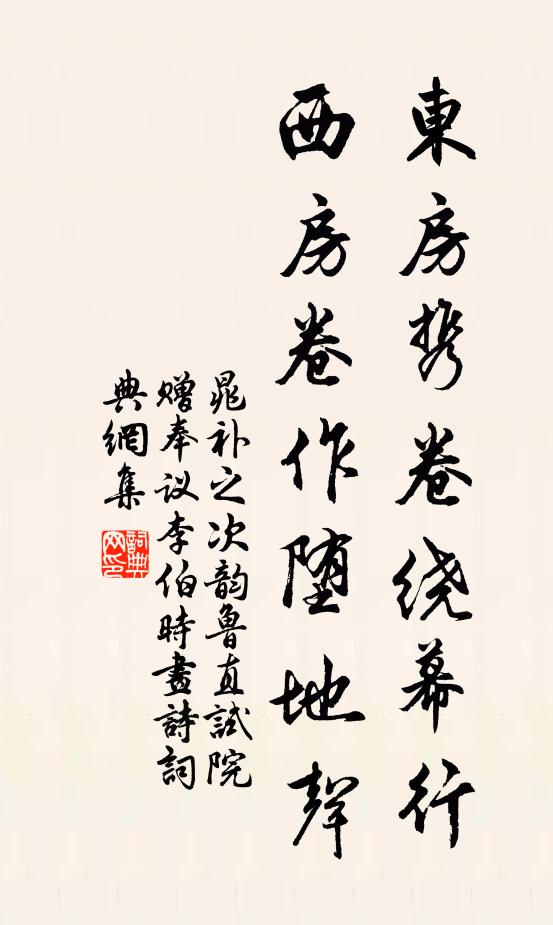 東房携卷绕幕行
西房卷作堕地聲
晁补之次韵魯直試院
赠奉议李伯時畫詩詞
典網集
詞典
网印